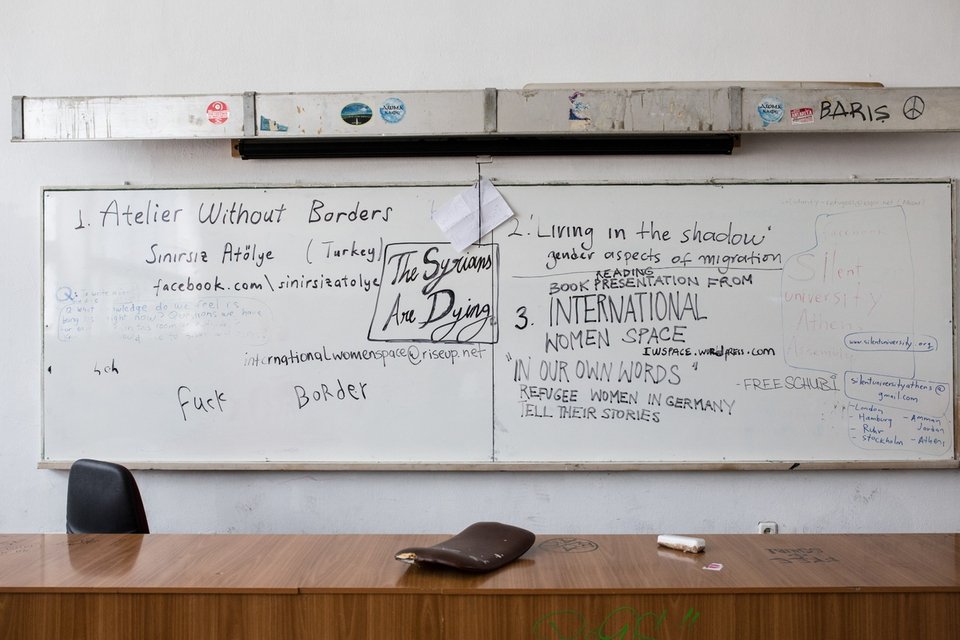 BARIŞ
1. Atelier Without Borders
Sınırsız Atölye (Turkey)
facebook.com\sinirsizatolye
The Syrians
Are Dying
internationalwomenspace@riseup.net
heh
Fuck Border
2. "Living in the shadow"
gender aspects of migration
READING
BOOK PRESENTATION FROM
3. INTERNATIONAL
WOMEN SPACE
IWSPACE.WORDPRESS.COM
"IN OUR OWN WORDS"
REFUGEE WOMEN IN GERMANY
TELL THEIR STORIES
- FREE SCHUBI
facebook
Silent
University
Athens
www.silentuniversity.org
silentuniversityathens@
gmail.com
- London
- Hamburg
- Ruhr
- Stockholm
- Amman
Jordan
- Athens